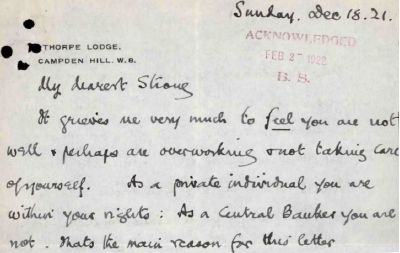 Sunday. Dec 18. 21.
ACKNOWLEDGED
FEB 27 1922
B. S.
THORPE LODGE,
CAMPDEN HILL. W. 8.
My dearest Strong
It grieves me very much to feel you are not
well & perhaps are overworking & not taking care
of yourself. As a private individual you are
within your rights: As a Central Banker you are
not. Thats the main reason for this letter